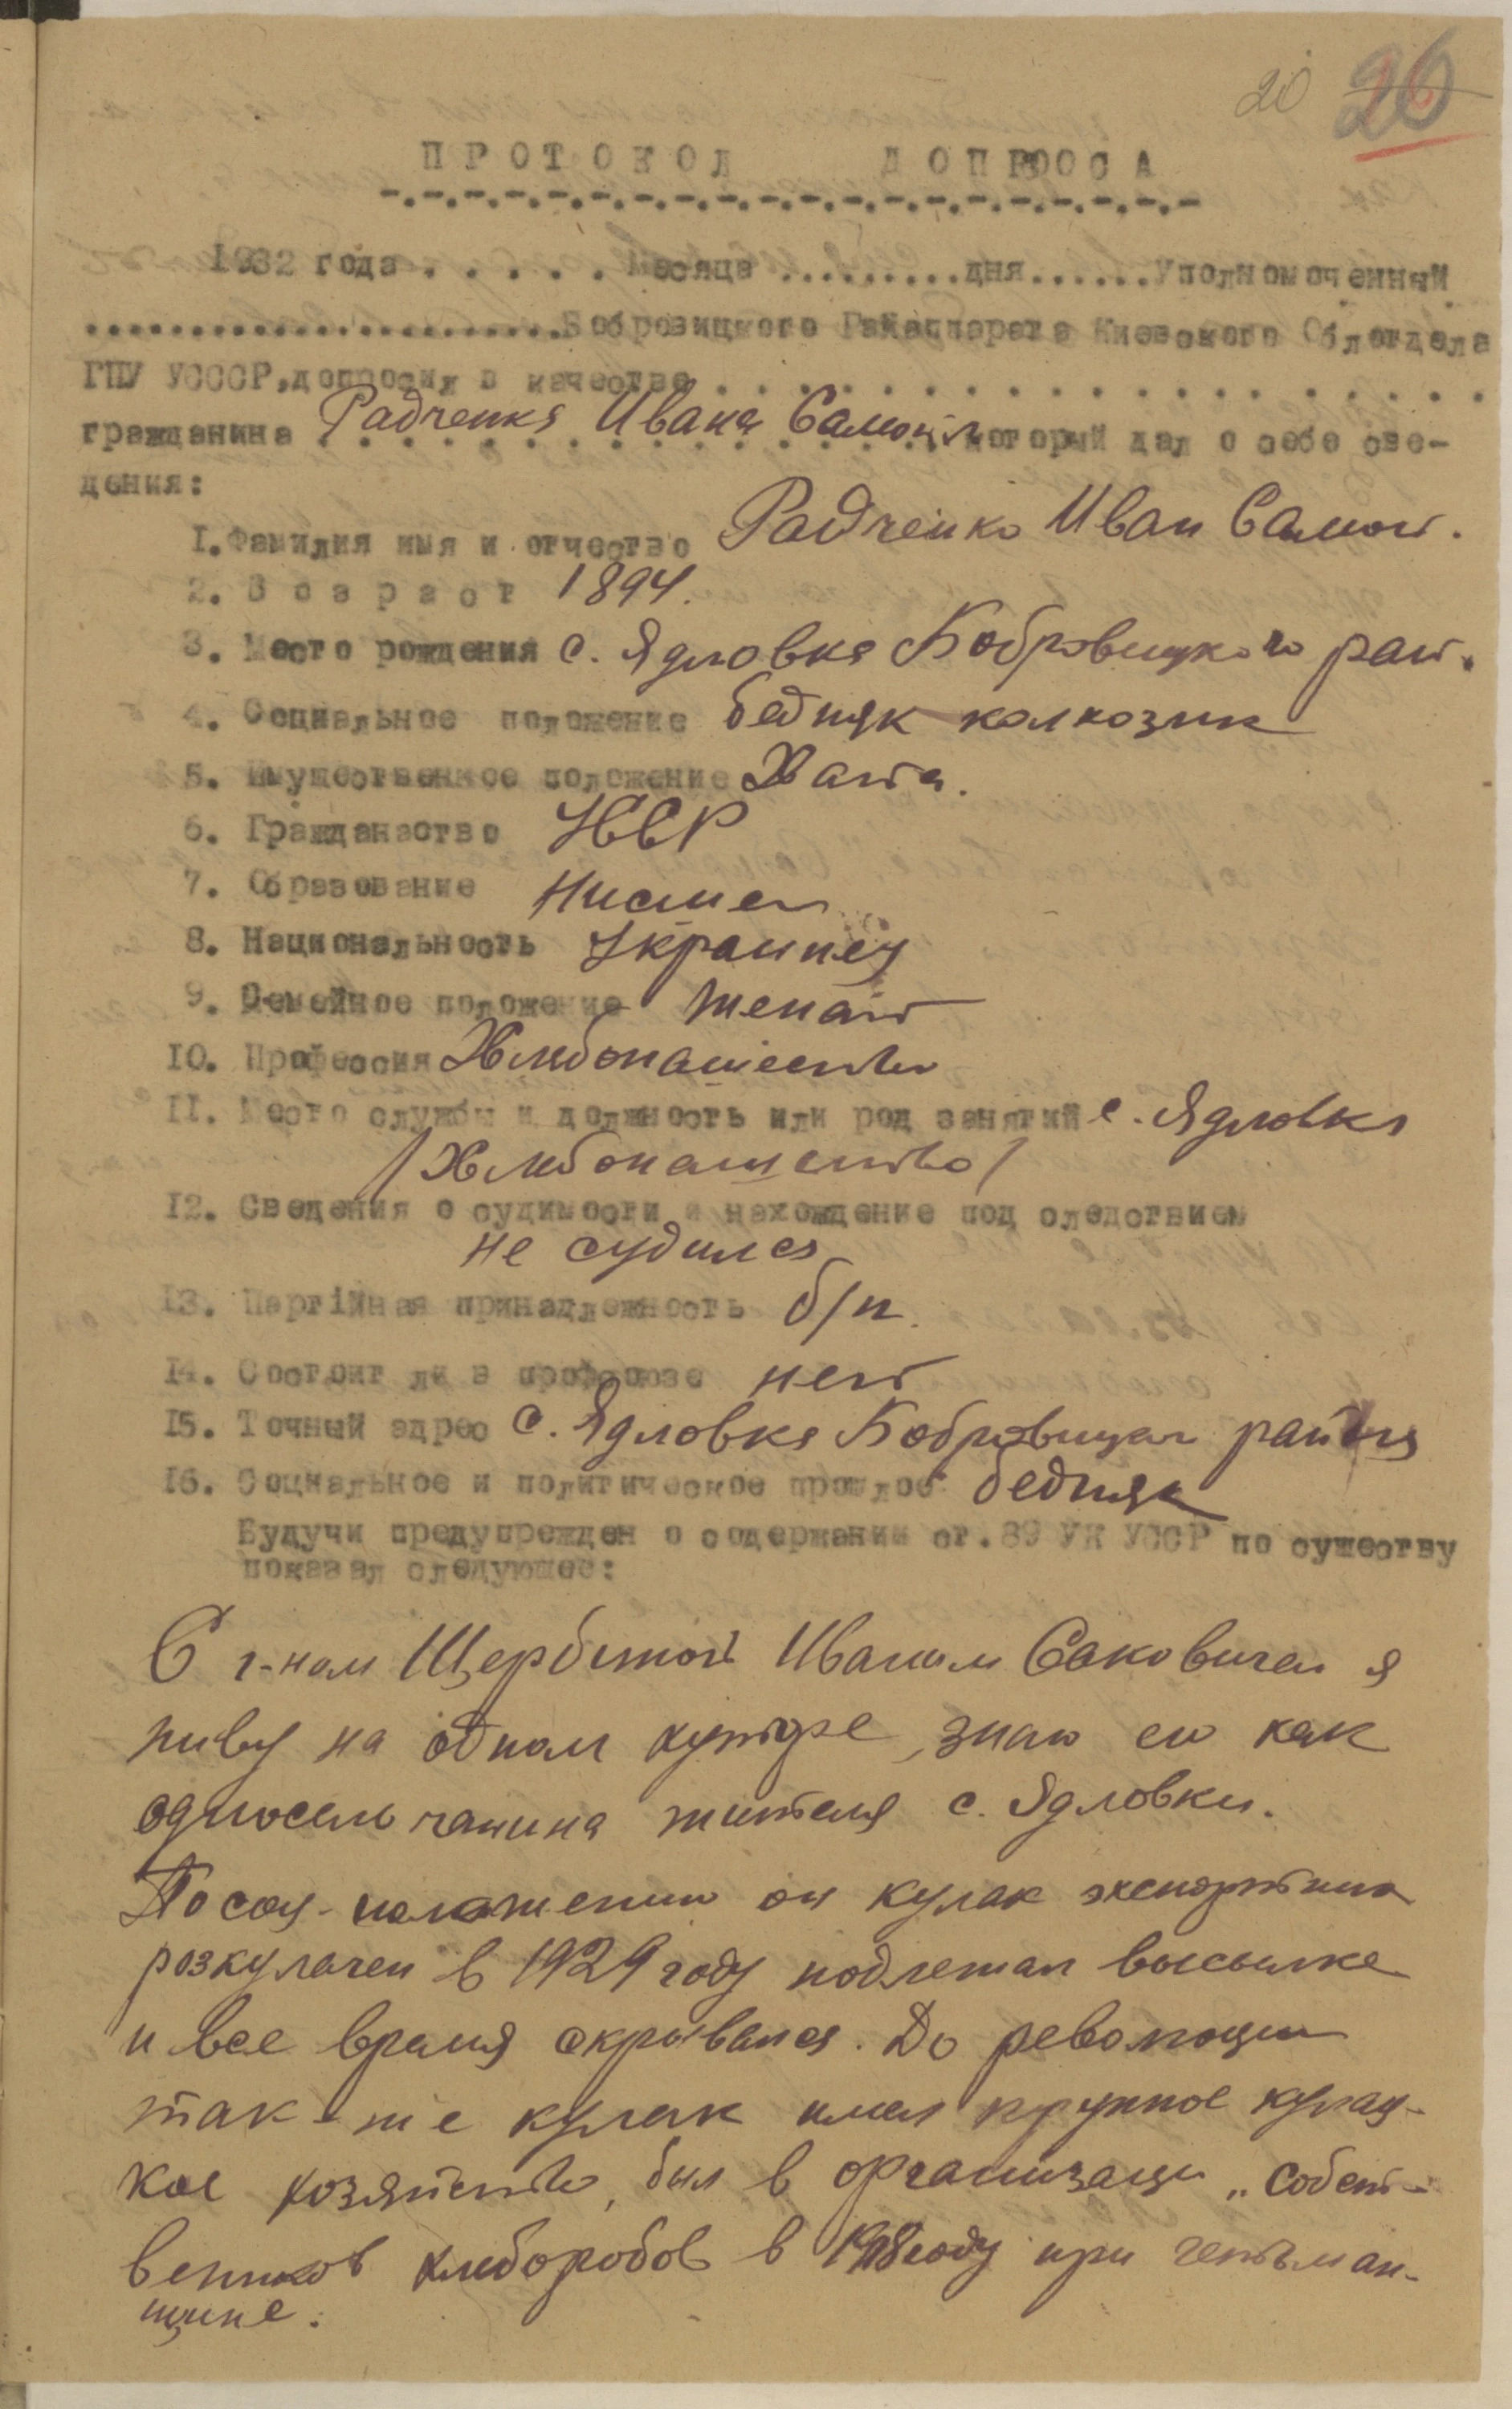 20 26
ПРОТОКОЛ ДОПРОСА
1932 года . . . . . . Месяца .........дня......Уполномоченный
.......................Бобровицкого Райаппарата Киевского Облотдела
ГПУ УСССР,допросил в качестве . . . . . . . . . . . . . . . . . . .
гражданина Радченка Ивана Самойл который дал о себе све-
дения:
1.Фамилия имя и отчество Радченко Иван Самой.
2. Возраст 1894.
3. Место рождения с. Ядловка Бобровицкого рай.
4. Социальное положение бедняк колхозник
5. Имущественное положение Хата.
6. Гражданаство УССР
7. Образование Нисшее
8. Национальность Украинец
9. Семейное положение Женат
10. Профессия Хлебопашество
11. Место службы и должность или род занятий с. Ядловка
/Хлебопашество/
12. Сведения о судимости и нахождение под следствием
не судился
13. Партійная принадлежность б/п.
14. Состоит ли в профсоюзе нет
15. Точный адрес с. Ядловка Бобровицког района
16. Социальное и политическое прошлое бедняк
Будучи предупрежден о содержании ст. 89 УК УССР по существу
показал следующее:
С г-ном Щербиной Иваном Саковичем я
живу на одном хуторе, знаю его как
односельчанина жителя с. Ядловки.
По соц-положению он кулак экспертник
розкулачен в 1929 году подлежал высылке
и все время скрывался. До революции
так-же кулак имел крупное кулац-
кое хозяйство, был в организации „собст-
венников хлеборобов в 1918 году при гетьман-
щине.